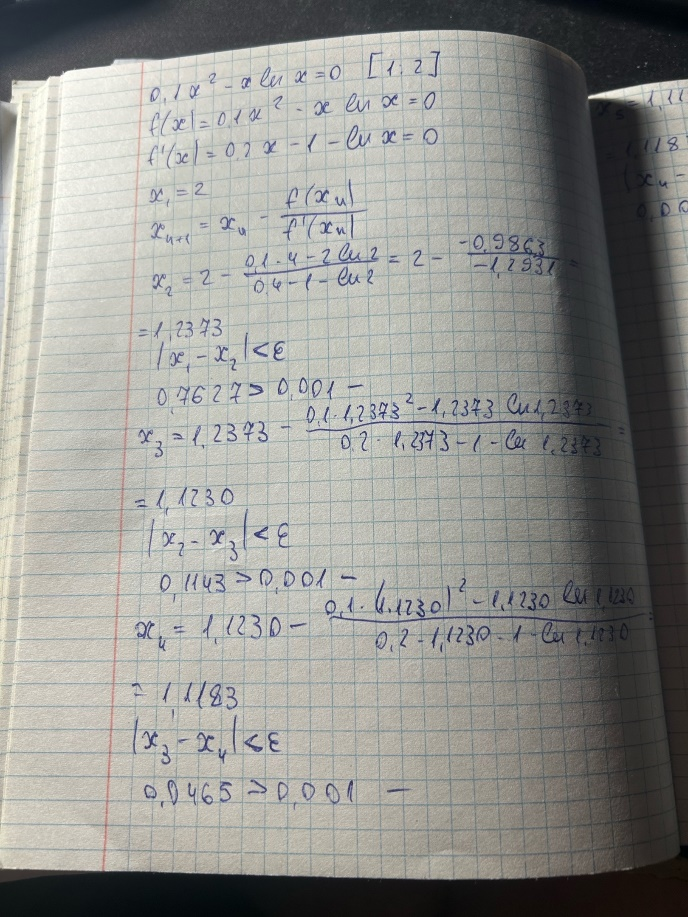 0,1x² - x ln x = 0 [1; 2]
f(x) = 0,1x² - x ln x = 0
f'(x) = 0,2x - 1 - ln x = 0
x₁ = 2
xₙ₊₁ = xₙ - f(xₙ) / f'(xₙ)
x₂ = 2 - (0,1·4 - 2 ln 2) / (0,4 - 1 - ln 2) = 2 - (-0,9863) / (-1,2931) =
= 1,2373
|x₁ - x₂| < ε
0,7627 > 0,001 —
x₃ = 1,2373 - (0,1·1,2373² - 1,2373 ln 1,2373) / (0,2·1,2373 - 1 - ln 1,2373) =
= 1,1230
|x₂ - x₃| < ε
0,1143 > 0,001 —
x₄ = 1,1230 - (0,1·(1,1230)² - 1,1230 ln 1,1230) / (0,2·1,1230 - 1 - ln 1,1230) =
= 1,1183
|x₃ - x₄| < ε
0,0465 > 0,001 —